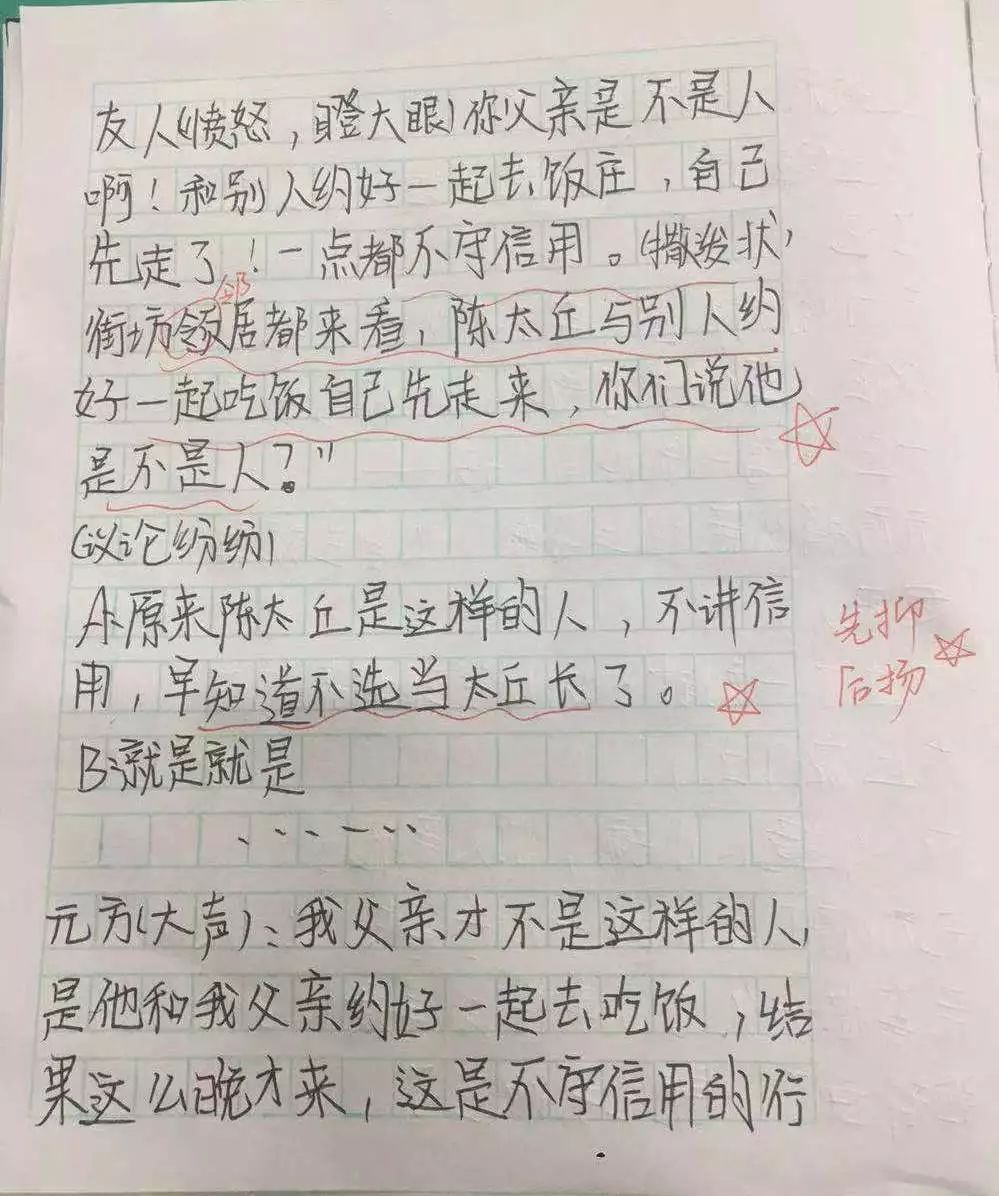 友人(愤怒，瞪大眼)你父亲是不是人
啊！和别人约好一起去饭庄，自己
先走了！一点都不守信用。(撒泼状)
邻
街坊领居都来看，陈太丘与别人约
好一起吃饭自己先走来，你们说他
是不是人？”
(议论纷纷)
A:原来陈太丘是这样的人，不讲信
用，早知道不选当太丘长了。
先抑
后扬
B:就是就是
......
元方(大声):我父亲才不是这样的人，
是他和我父亲约好一起去吃饭，结
果这么晚才来，这是不守信用的行